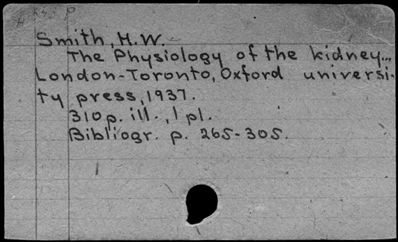 Smith, H.W.
The Physiology of the kidney...
London-Toronto, Oxford universi-
ty press, 1937.
310 p. ill., 1 pl.
Bibliogr. p. 265-305.